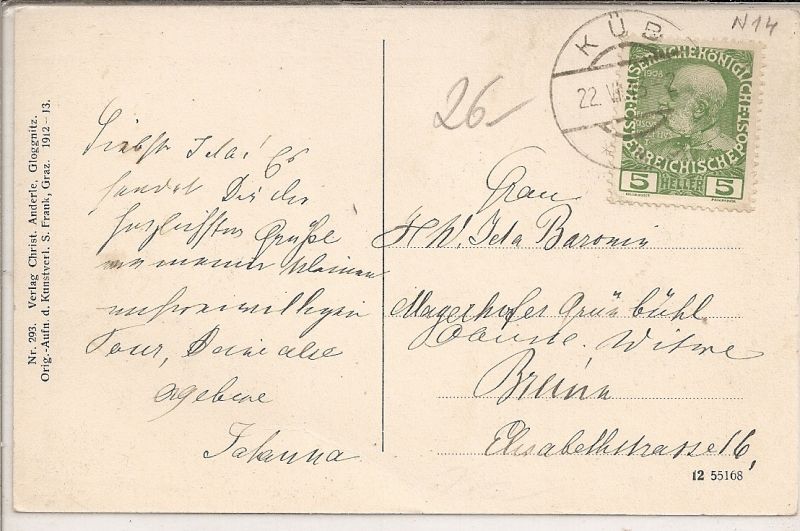 Nr. 293. Verlag Christ. Anderle, Gloggnitz.
Orig.-Aufn. d. Kunstverl. S. Frank, Graz. 1912–13.
Liebste Ida! Es
sendet Dir die
herzlichsten Grüße
von meiner kleinen
unfreiwilligen
Tour, Deine alte
ergebene
Johanna
26–
N14
KÜB
22. VI
1908
ÖSTERREICHISCHE POST
KAISERLICHEKÖNIGLICHE
5 HELLER 5
Frau
Ida Baronin
Mayerhofer Grünbühl
Witwe
Brünn
Elisabethstrasse 16,
12 55168